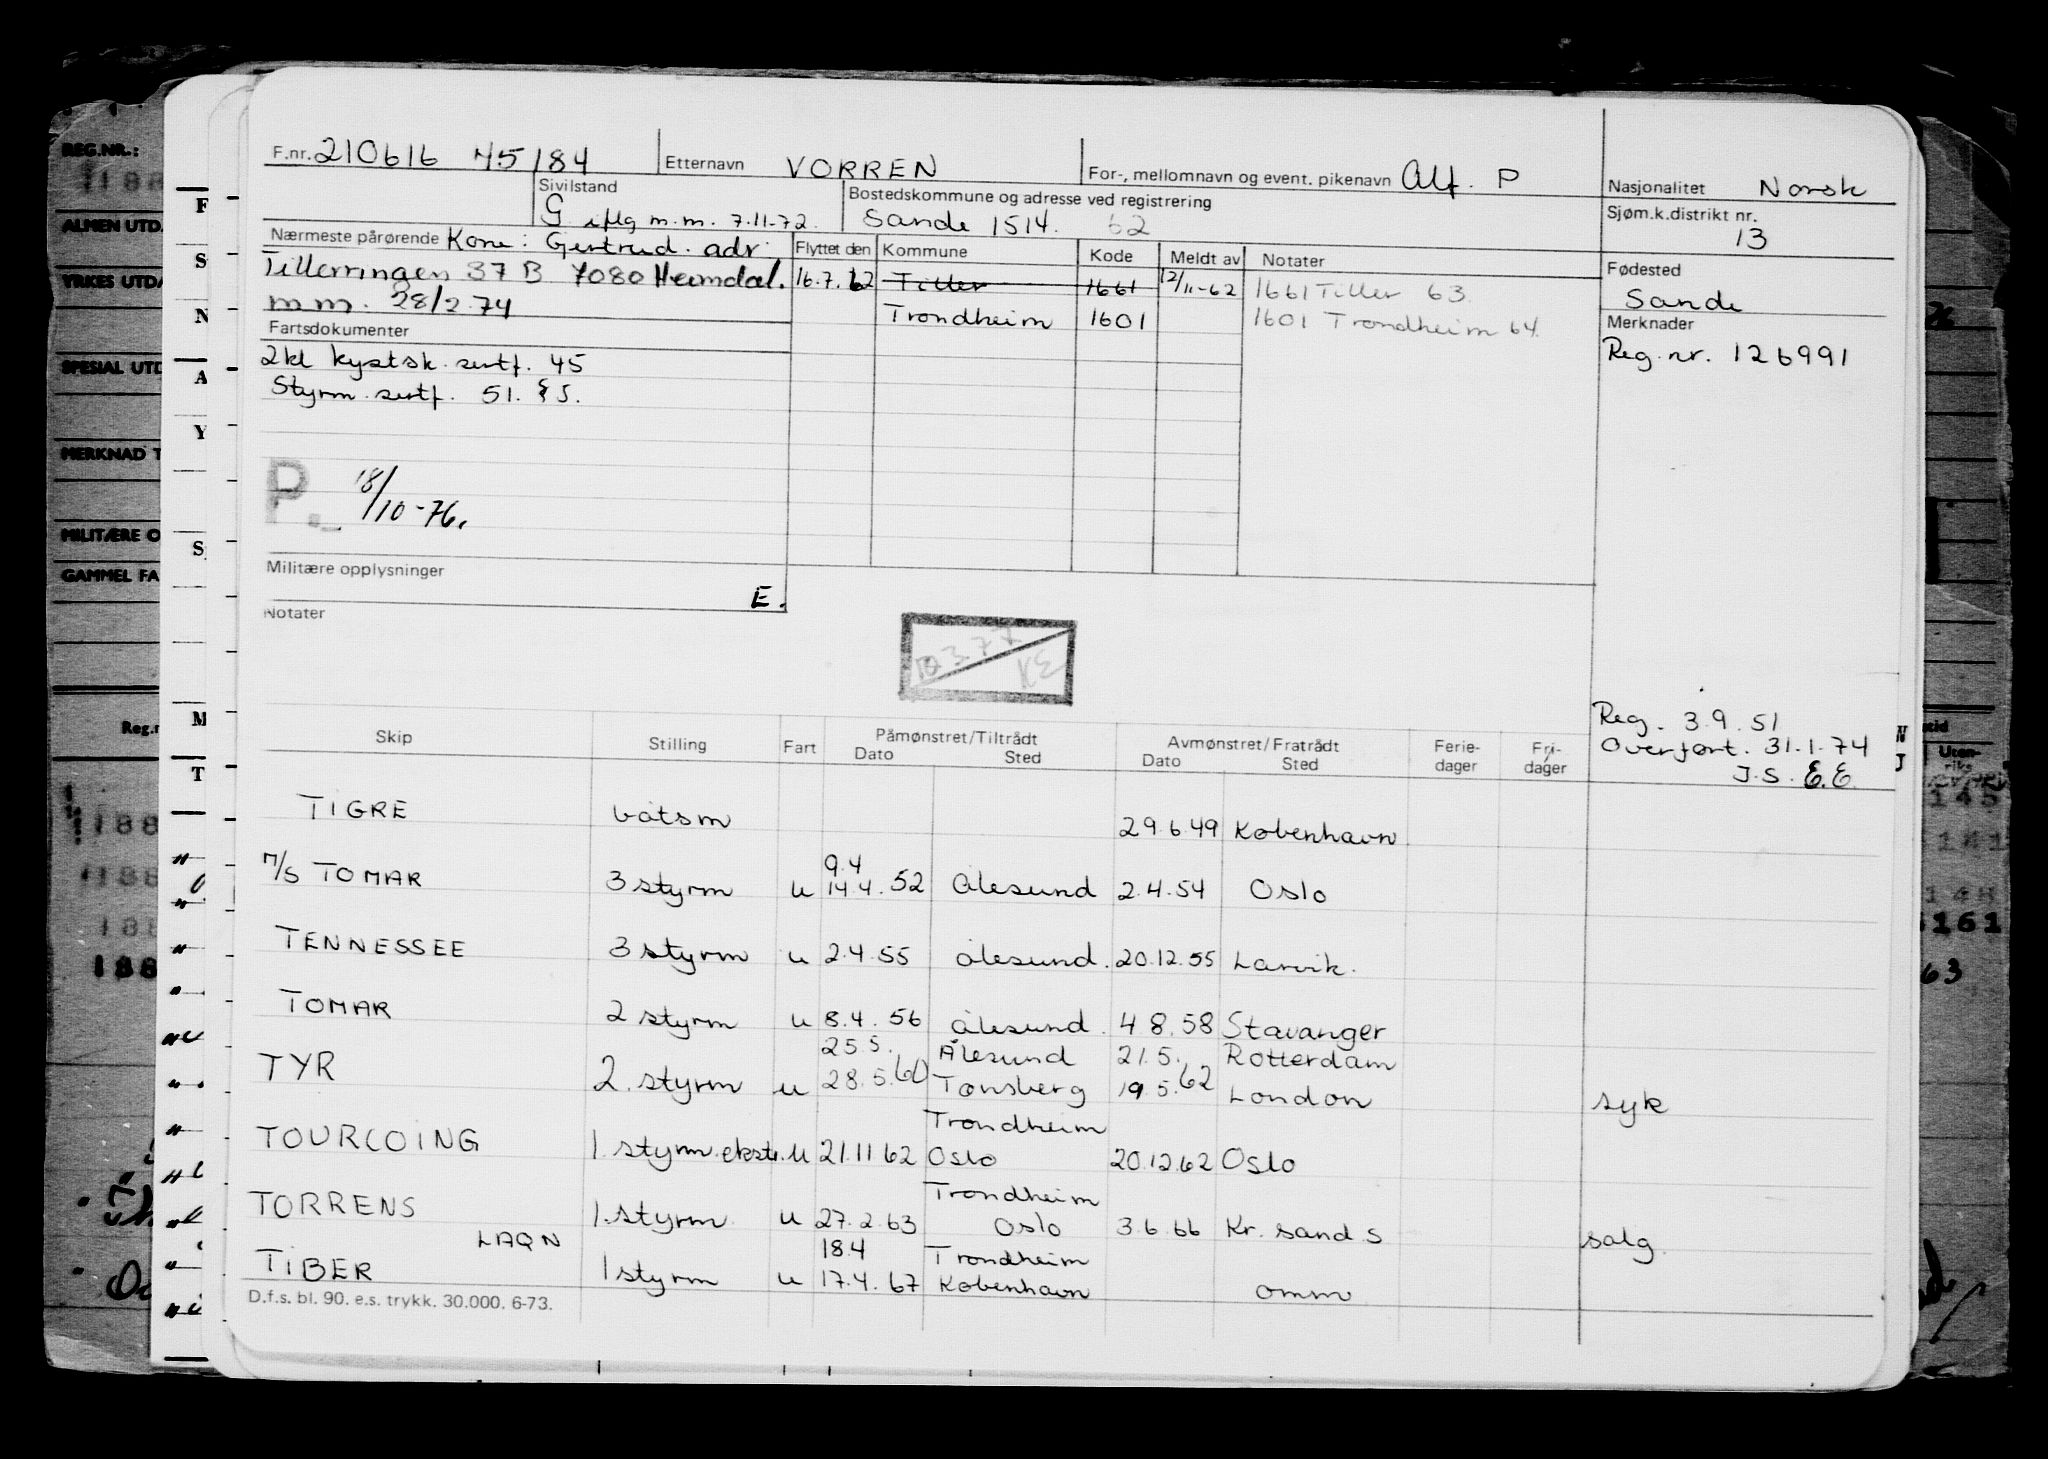 F.nr. 210616 45184 Etternavn VORREN For-, mellomnavn og event. pikenavn Alf. P Nasjonalitet Norsk
Sivilstand G iflg m.m. 7.11-72. Bostedskommune og adresse ved registrering Sande 1514. 62 Sjøm.k.distrikt nr. 13
Nærmeste pårørende Kone: Gertrud. adr: Flyttet den Kommune Kode Meldt av Notater Fødested
Tillerringen 37 B 7080 Heimdal. 16.7.62 Tiller 1661 12/11-62 1661 Tiller 63 Sande
m.m. 28/2.74 Trondheim 1601 1601 Trondheim 64. Merknader
Fartsdokumenter Reg.nr. 126991
2kl kystsk. sertf. 45
Styrm. sertf. 51. § 5.
P. 18/10-76.
Militære opplysninger
E.
Notater
10 3.77
KE
Reg. 3.9.51
Overført. 31.1.74
J.S. E.E.
Skip Stilling Fart Påmønstret/Tiltrådt Avmønstret/Fratrådt Ferie- Fri-
Dato Sted Dato Sted dager dager
TIGRE båtsm 29.6.49 København
9.4
M/S TOMAR 3 styrm u 14.4.52 Ålesund 2.4.54 Oslo
TENNESSEE 3 styrm u 2.4.55 Ålesund. 20.12.55 Larvik.
TOMAR 2 styrm u 8.4.56 Ålesund. 4 8.58 Stavanger
25.5. Ålesund 21.5. Rotterdam
TYR 2. styrm u 28.5.60 Tønsberg 19.5.62 London syk
Trondheim
TOURCOING 1. styrm.ekstr. u 21.11 62 Oslo 20.12.62 Oslo
Trondheim
TORRENS 1. styrm. u 27.2.63 Oslo 3.6.66 Kr. sand S salg.
LAQN 18.4 Trondheim
TIBER 1 styrm u 17.4.67 København omm
D.f.s. bl. 90. e.s. trykk. 30.000. 6-73.
REG.NR.:
ALMEN UTD
YRKES UTDA
SPESIAL UTD
MERKNAD T
MILITÆRE O
GAMMEL FA
F
S
N
A
Y
S
M
T